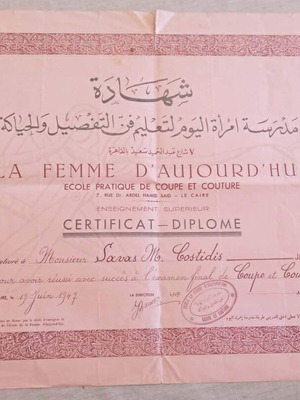 شهادة
مدرسة امرأة اليوم لتعليم فن التفصيل والحياكة
٧ شارع عبد الحميد سعيد بالقاهرة
LA FEMME D'AUJOURD'HU
ECOLE PRATIQUE DE COUPE ET COUTURE
7, RUE DR. ABDEL HAMID SAID - LE CAIRE
ENSEIGNEMENT SUPERIEUR
CERTIFICAT-DIPLOME
Monsieur Savas M. Costidis
pour avoir réussi avec succès à l'examen final de Coupe et Cou
19 Juin 1947
LA DIRECTION